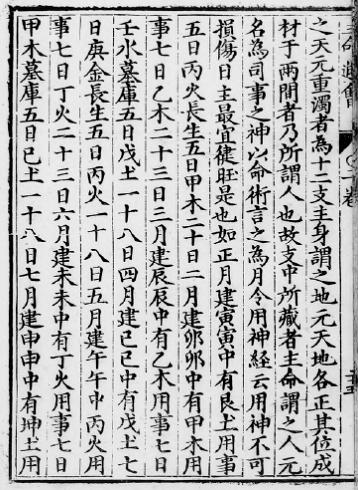 之天元重濁者為十二支主身謂之地元天地各正其位成
材于兩間者乃所謂人也故支中所藏者主命謂之人元
名為司事之神以命術言之為月令用神經云用神不可
損傷日主最宜健旺是也如正月建寅寅中有艮土用事
五日丙火長生五日甲木二十日二月建卯卯中有甲木用
事七日乙木二十三日三月建辰辰中有乙木用事七日
壬水墓庫五日戊土一十八日四月建巳巳中有戊土七
日庚金長生五日丙火一十八日五月建午午中丙火用
事七日丁火二十三日六月建未未中有丁火用事七日
甲木墓庫五日己土一十八日七月建申申中有坤土用